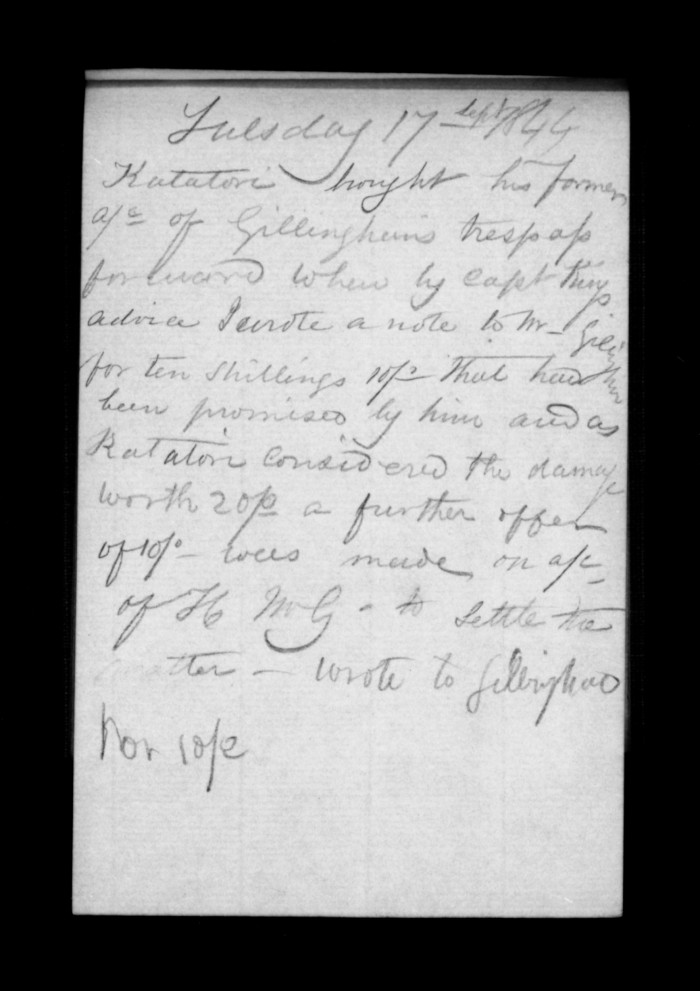 Tuesday 17 Sept 1844
Katatori brought his former
a/c of Gillinghams trespass
forward when by Capt Kings
advice I wrote a note to Mr - Gillingham
for ten shillings 10/- that had
been promised by him and as
Katatori considered the damage
worth 20/- a further offer
of 10/- was made on a/c
of H McG - to settle the
matter - wrote to Gillingham
for 10/-